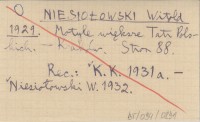 NIESIOŁOWSKI Witold
1929. Motyle większe Tatr Pols-
kich. – Kraków. Stron 88.
Rec.: K.K. 1931a. –
Niesiołowski W. 1932.